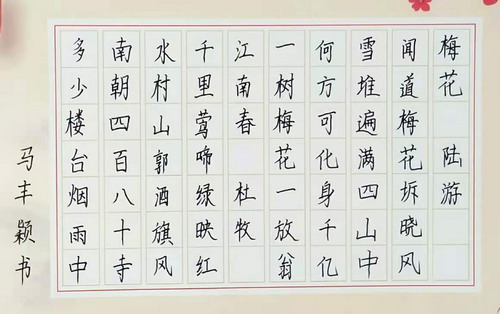 梅花 陆游
闻道梅花拆晓风
雪堆遍满四山中
何方可化身千亿
一树梅花一放翁
江南春 杜牧
千里莺啼绿映红
水村山郭酒旗风
南朝四百八十寺
多少楼台烟雨中
马丰颖书